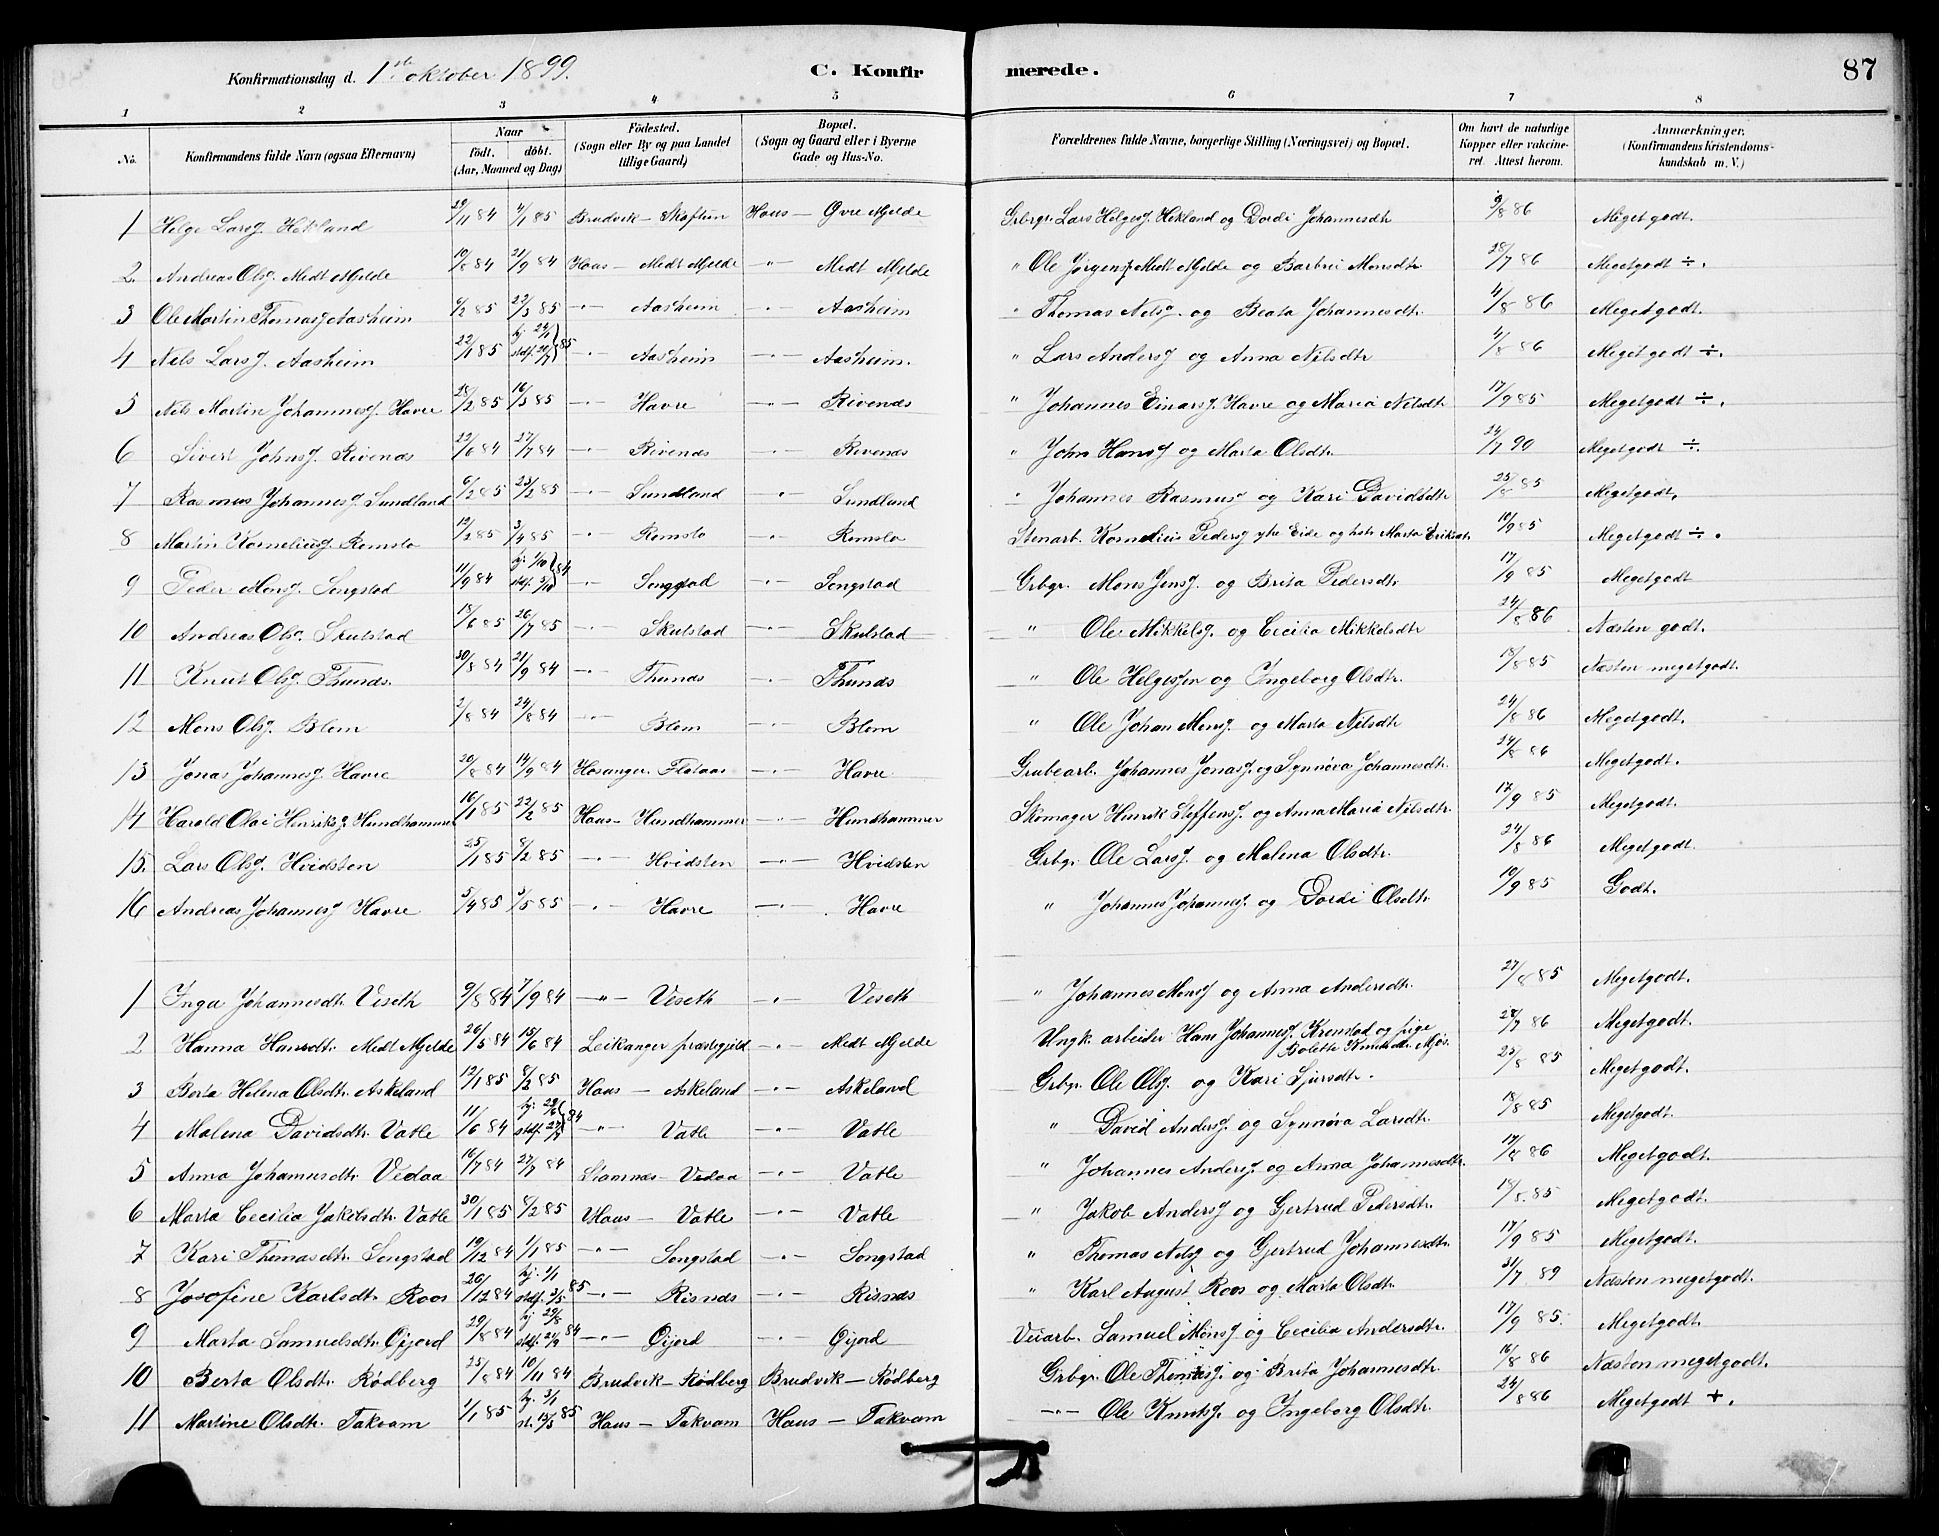 Konfirmationsdag d. 1ste oktober 1899. C. Konfirmerede. 87
1 2 3 4 5 6 7 8
No. Konfirmandens fulde Navn (ogsaa Efternavn) Naar födt. döbt. (Aar, Maaned og Dag) Födested. (Sogn eller By og paa Landet tillige Gaard) Bopæl. (Sogn og Gaard eller i Byerne Gade og Hus-No. Forældrenes fulde Navne, borgerlige Stilling (Næringsvei) og Bopæl. Om havt de naturlige Kopper eller vakcineret. Attest herom. Anmærkninger. (Konfirmandens Kristendomskundskab m. V.)
1 Helge Larsg. Hekland 29/11 84 4/1 85 Brudvik - Skaftun Haus - Øvre Mjelde Grbgr. Lars Helgesg. Hekland og Dordi Johannesdtr 9/8 86 Meget godt.
2. Andreas Olsg. Medt Mjelde 19/8 84 21/9 84 Haus - Medt Mjelde -"- Medt Mjelde " Ole Jørgensg Medt Mjelde og Barbrei Monsdtr. 28/7 86 Megetgodt ÷.
3 Ole Martin Thomasg Aasheim 6/2 85 22/3 85 -"- Aasheim -"- Aasheim " Thomas Nelsg. og Beata Johannesdtr. 4/8 86 Megetgodt.
4 Nils Larsg. Aasheim 22/1 85 hj. 24/1 stdf. 20/7 85 -"- Aasheim -"- Aasheim. " Lars Andersg og Anna Nilsdtr 4/8 86 Meget godt ÷.
5 Nils Martin Johannesg. Havre 28/2 85 16/3 85 -"- Havre -"- Rivenæs " Johannes Einarsg. Havre og Maria Nilsdtr 17/9 85 Megetgodt ÷.
6 Sivert Johnsg. Rivenæs 29/6 84 27/7 84 -"- Rivenæs -"- Rivenæs " John Hansg og Marta Olsdtr. 24/7 90 Megetgodt ÷.
7 Rasmus Johannesg. Sundland 6/2 85 23/2 85 -"- Sundland -"- Sundland " Johannes Rasmusg og Kari Davidsdtr 25/8 85 Megetgodt.
8 Martin Korneliusg. Romslo 12/2 85 3/4 85 -"- Romslo -"- Romslo Stenarb. Kornelius Pedersg ytre Eide og hstr Marta Eriksdtr. 10/9 85 Megetgodt ÷.
9 Peder Monsg. Songstad 11/9 84 hj. 1/10 stdf. 5/10 84 -"- Songstad -"- Songstad Grbgr. Mons Jensg. og Brita Pedersdtr. 17/9 85 Megetgodt
10 Andreas Olsg. Skulstad 18/6 85 26/7 85 -"- Skulstad -"- Skulstad " Ole Mikkelsg. og Cecilia Mikkelsdtr 24/8 86 Næsten godt.
11 Knut Olsg. Thunæs. 30/8 84 21/9 84 -"- Thunæs -"- Thunæs " Ole Helgesjen og Ingeborg Olsdtr. 18/8 85 Næsten megetgodt.
12 Mons Olsg. Blom 2/8 84 24/8 84 -"- Blom -"- Blom " Ole Johan Monsg. og Marta Nilsdtr 24/8 86 Megetgodt.
13 Jonas Johannesg Havre 20/8 84 14/9 84 Hosanger. Flataas -"- Havre Grubearb. Johannes Jonasg. og Synnøva Johannesdtr. 24/8 86 Megetgodt.
14 Harald Olai Henriksg. Hundhammer 16/1 85 22/2 85 Haus - Hundhammer -"- Hundhammer Skomager Henrik Steffensg. og Anna Maria Nilsdtr. 17/9 85 Megetgodt.
15. Lars Olsg. Hvidsten 25/1 85 8/2 85 -"- Hvidsten -"- Hvidsten Grbgr. Ole Larsg. og Malena Olsdtr. 24/8 86 Megetgodt.
16 Andreas Johannesg Havre 5/4 85 3/5 85 -"- Havre -"- Havre " Johannes Johannesg. og Dordi Olsdtr. 10/9 85 Godt.
1 Inga Johannesdtr. Viseth 9/8 84 7/9 84 -"- Viseth -"- Veseth " Johannes Monsg og Anna Andersdtr. 27/8 85 Megetgodt.
2 Hanna Hansdtr. Medt Mjelde 26/5 84 15/6 84 Leikanger præstegjeld -"- Medt Mjelde Ungk. arbeider Hans Johannesg. Kronstad og pige Bolette Knutsdtr. Mjøs. 28/7 86 Megetgodt.
3 Berta Helena Olsdtr. Askeland 12/1 85 8/2 85 Haus - Askeland -"- Askeland Grbgr. Ole Olsg. og Kari Sjursdtr. 25/8 85 Megetgodt.
4 Malena Davidsdtr. Vatle 11/6 84 hj. 22/6 stdf. 27/7 84 -"- Vatle -"- Vatle " David Andersg. og Synnøva Larsdtr. 18/8 85 Megetgodt.
5 Anna Johannesdtr. Vedaa 16/7 84 27/7 84 Stamnæs - Vedaa -"- Vatle " Johannes Andersg. og Anna Johannesdtr. 17/8 86 Megetgodt.
6 Marta Cecilia Jakobsdtr. Vatle 30/1 85 8/2 85 Haus - Vatle -"- Vatle " Jakob Andersg og Gertrud Pedersdtr. 18/8 85 Megetgodt.
7 Kari Thomasdtr. Songstad 19/12 84 1/1 85 -"- Songstad -"- Songstad " Thomas Nelsg og Gjertrud Johannesdtr. 17/9 85 Megetgodt.
8 Josefine Karlsdtr. Roos 20/12 84 hj. 1/1 stdf. 3/5 85 -"- Risnæs -"- Risnæs " Karl August Roos og Marta Olsdtr. 31/7 89 Næsten megetgodt.
9 Marta Samuelsdtr. Øijord 29/8 84 hj 29/8 stdf. 21/9 84 -"- Øijord -"- Øijord Veiarb. Samuel Monsg og Cecilia Andersdtr. 17/9 85. Megetgodt.
10 Berta Olsdtr. Rødberg 25/8 84 10/11 84 Brudvik - Rødberg Brudvik - Rødberg Grbgr. Ole Thomasg. og Brita Johannesdtr. 16/8 86 Næsten megetgodt.
11 Martine Olsdtr. Takvam 1/1 85 hj. 3/1 st. 15/3 85 Haus - Takvam Haus - Takvam -"- Ole Knutsg. og Ingeborg Olsdtr. 24/8 86 Megetgodt +.